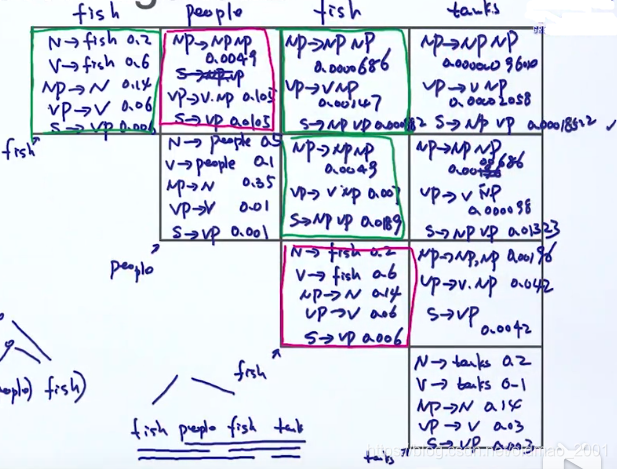 fish people fish tanks
N→fish 0.2
V→fish 0.6
NP→N 0.14
VP→V 0.06
S→VP 0.006
NP→NP NP
0.0049
VP→V.NP 0.105
S→VP 0.0105
NP→NP NP
0.0000686
VP→V NP
0.00147
S→NP VP 0.000882
NP→NP NP
VP→V NP
0.00002058
S→NP VP 0.00018522 ✓
fish
N→people 0.5
V→people 0.1
NP→N 0.35
VP→V 0.01
S→VP 0.001
NP→NP NP
0.0049
VP→V NP 0.007
S→NP VP 0.0189
NP→NP NP
VP→V NP
0.000098
S→NP VP 0.01323
people
N→fish 0.2
V→fish 0.6
NP→N 0.14
VP→V 0.06
S→VP 0.006
NP→NP,NP 0.00196
VP→V.NP 0.042
S→VP
0.0042
fish
N→tanks 0.2
V→tanks 0.1
NP→N 0.14
VP→V 0.03
S→VP 0.003
tanks
people) fish)
fish people fish tank